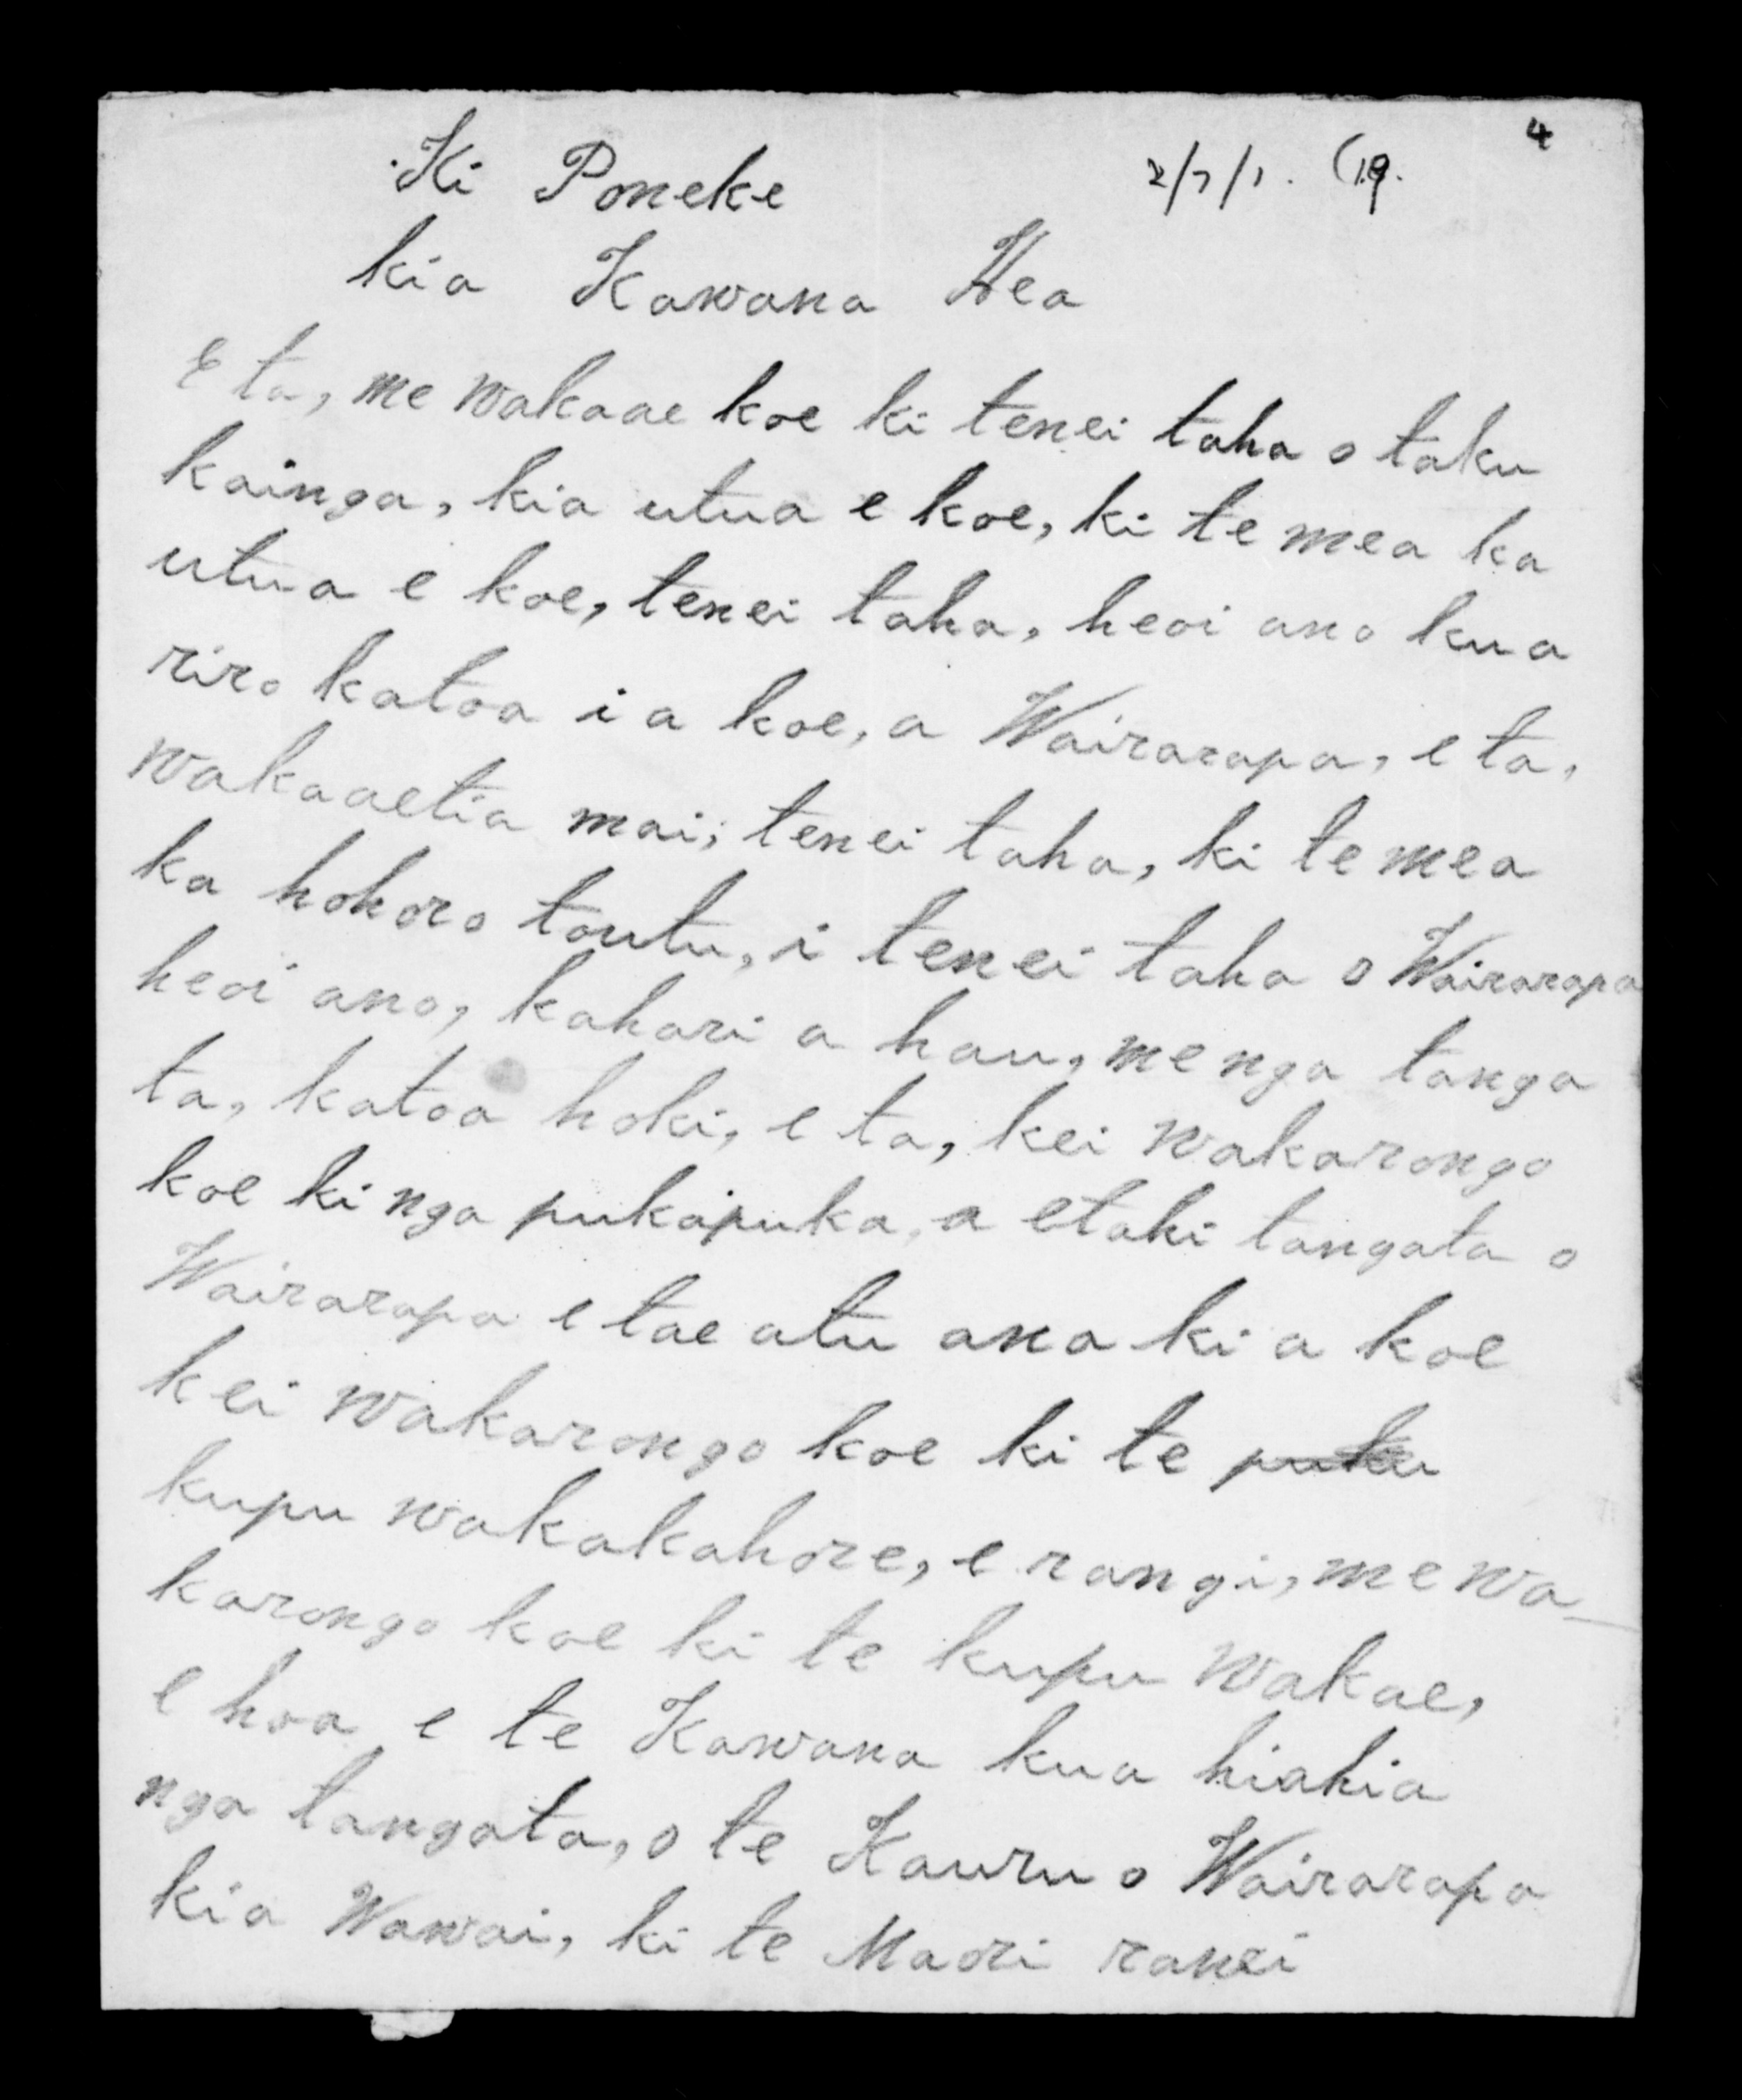 4
Ki Poneke
kia Kawana Hea
E ta, me wakaae koe ki tenei taha o taku
kainga, kia utua e koe, ki te mea ka
utua e koe, tenei taha, heoi ano kua
riro katoa i a koe, a Wairarapa, e ta,
wakaaetia mai, tenei taha, ki te mea
ka hohoro toutu, i tenei taha o Wairarapa
heoi ano, kahari a hau, me nga tanga
ta, katoa hoki, e ta, kei wakarongo
koe ki nga pukapuka, a etahi tangata o
Wairarapa e tae atu ana ki a koe
kei wakarongo koe ki te puku
kupu wakakahore, e rangi, me wa-
karongo koe ki te kupu wakae,
e hoa e te Kawana kua hiahia
nga tangata, o te Kauru o Wairarapa
kia Wawai, ki te Maori ranei